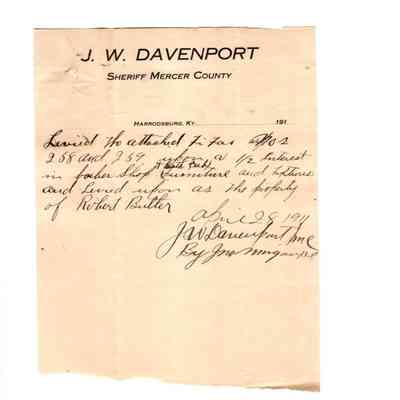 J. W. DAVENPORT
SHERIFF MERCER COUNTY
HARRODSBURG, KY. 191
Levied the attached Fi Fas Nos
258 and 259 upon a 1/2 Interest
in barber Shop Furniture and fixtures
and Levied upon as the property
of Robert Butler
April 29 1911
J W Davenport SMC
By Jno Morgan DS